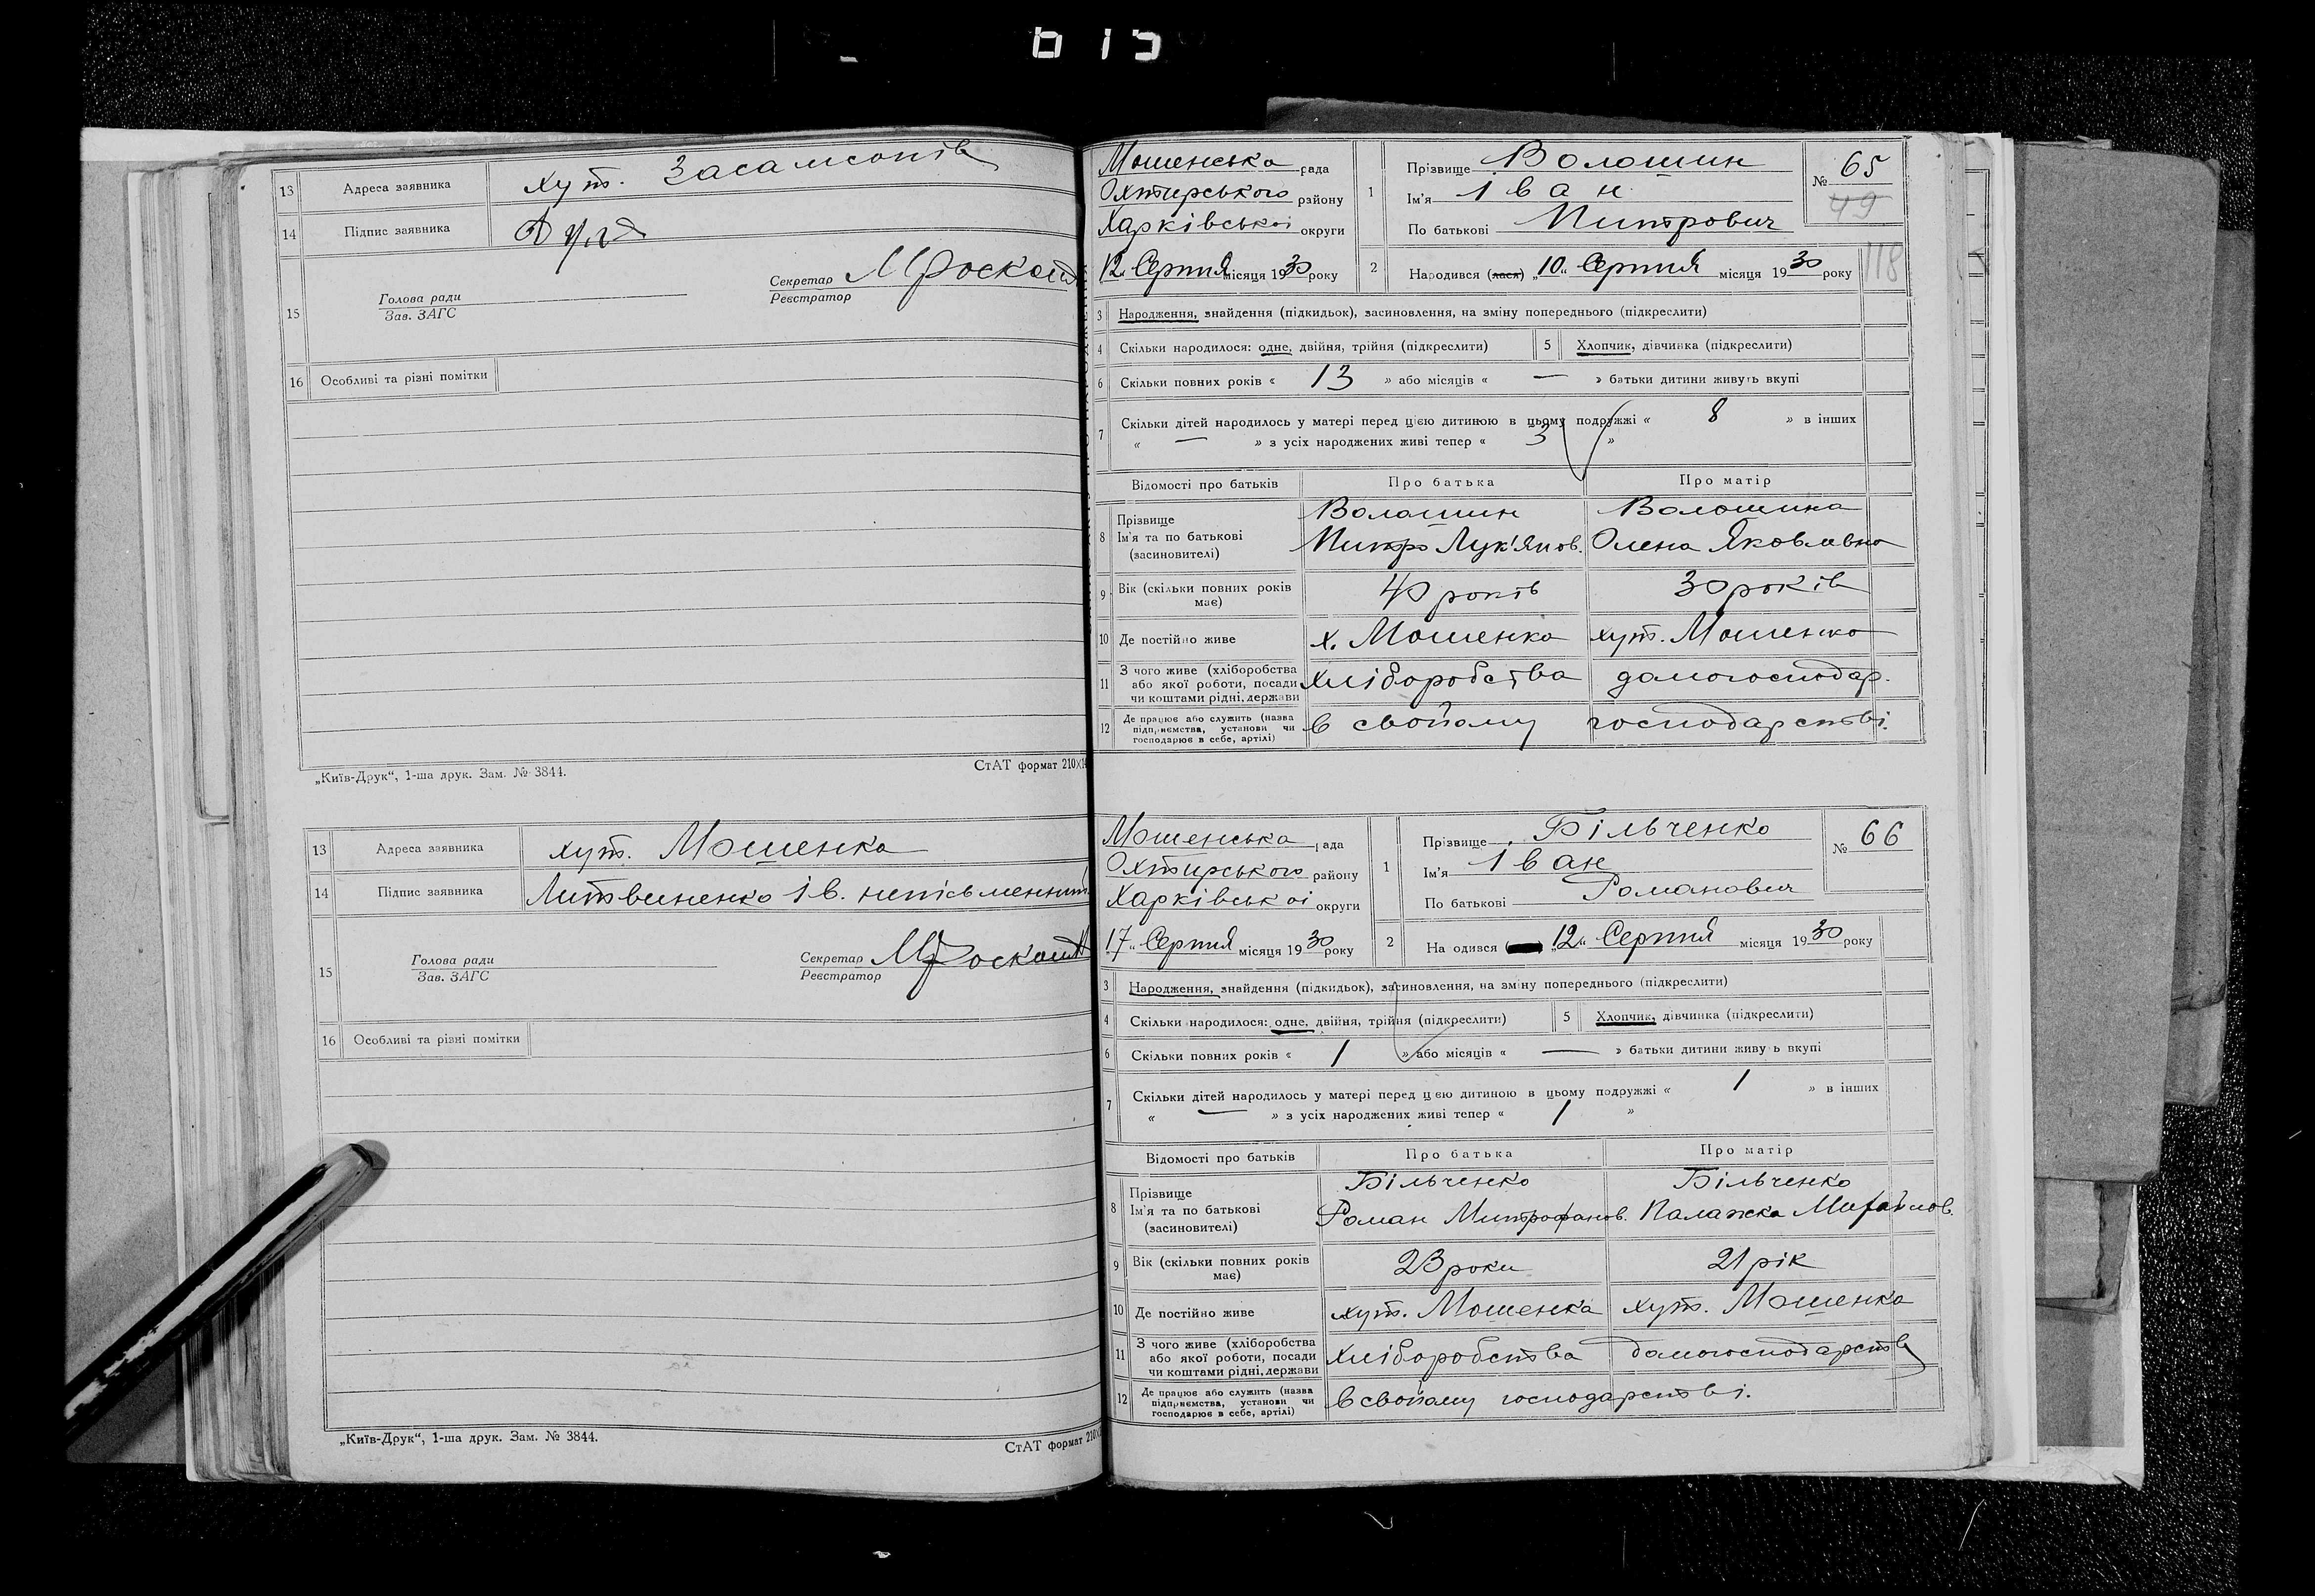 13 Адреса заявника хут. Засамсонів
14 Підпис заявника
15 Голова ради
Зав. ЗАГС
Секретар
Реєстратор
16 Особливі та різні помітки
„Київ-Друк“, 1-ша друк. Зам. № 3844.
СтАТ формат 210×1
13 Адреса заявника хут. Мошенка
14 Підпис заявника Литвиненко Ів. непісьменний
15 Голова ради
Зав. ЗАГС
Секретар
Реєстратор
16 Особливі та різні помітки
„Київ-Друк“, 1-ша друк. Зам. № 3844.
СтАТ формат 210
Мошенська рада
Охтирського району
Харківськоі округи
12 „ Серпня місяця 1930 року
1 Прізвище Волошин
Ім'я Іван
По батькові Митрович
№ 65
49
118
2 Народився (лася) „10“ Серпня місяця 1930 року
3 Народження, знайдення (підкидьок), засиновлення, на зміну попереднього (підкреслити)
4 Скільки народилося: одне, двійня, трійня (підкреслити) 5 Хлопчик, дівчинка (підкреслити)
6 Скільки повних років « 13 » або місяців « — » батьки дитини живуть вкупі
7 Скільки дітей народилось у матері перед цією дитиною в цьому подружжі « 8 » в інших
« — » з усіх народжених живі тепер « 3 »
Відомості про батьків Про батька Про матір
8 Прізвище Волошин Волошина
Ім'я та по батькові Митро Лук'янов. Олена Яковлевна
(засиновителі)
9 Вік (скільки повних років має) 40 років 30 років
10 Де постійно живе х. Мошенка хут. Мошенка
11 З чого живе (хліборобства або якої роботи, посади чи коштами рідні, держави хліборобства домогосподар.
12 Де працює або служить (назва підприємства, установи чи господарює в себе, артілі) в свойому господарстві.
Мошенська рада
Охтирського району
Харківськоі округи
17 „ Серпня місяця 1930 року
1 Прізвище Більченко
Ім'я Іван
По батькові Романович
№ 66
2 На одився „12“ Серпня місяця 1930 року
3 Народження, знайдення (підкидьок), засиновлення, на зміну попереднього (підкреслити)
4 Скільки народилося: одне, двійня, трійня (підкреслити) 5 Хлопчик, дівчинка (підкреслити)
6 Скільки повних років « 1 » або місяців « — » батьки дитини живу ь вкупі
7 Скільки дітей народилось у матері перед цією дитиною в цьому подружжі « 1 » в інших
« — » з усіх народжених живі тепер « 1 »
Відомості про батьків Про батька Про матір
8 Прізвище Більченко Більченко
Ім'я та по батькові Роман Митрофанов. Палажка Михайлов.
(засиновителі)
9 Вік (скільки повних років має) 23 роки 21 рік
10 Де постійно живе хут. Мошенка хут. Мошенка
11 З чого живе (хліборобства або якої роботи, посади чи коштами рідні, держави хліборобства домогосподарств
12 Де працює або служить (назва підприємства, установи чи господарює в себе, артілі) в свойому господарстві.